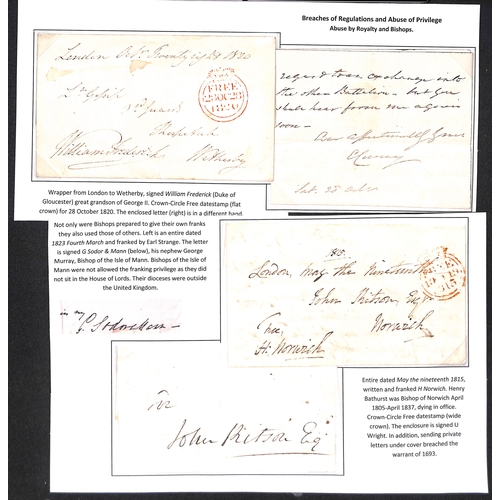 Breaches of Regulations and Abuse of Privilege
Abuse by Royalty and Bishops.
London Octr. Twenty eight 1820
FREE
28 OC 28
1820
William Frederick
Wetherby
regard to an exchange into
the other Battalion – but you
shall hear from me again
soon –
Wrapper from London to Wetherby, signed William Frederick (Duke of
Gloucester) great grandson of George II. Crown-Circle Free datestamp (flat
crown) for 28 October 1820. The enclosed letter (right) is in a different hand
Not only were Bishops prepared to give their own franks
they also used those of others. Left is an entire dated
1823 Fourth March and franked by Earl Strange. The letter
is signed G Sodor & Mann (below), his nephew George
Murray, Bishop of the Isle of Mann. Bishops of the Isle of
Mann were not allowed the franking privilege as they did
not sit in the House of Lords. Their dioceses were outside
the United Kingdom.
G. Sodor & Mann
1815.
London, May the Nineteenth
John Kitson, Esqr.
Free, Norwich
H: Norwich
John Kitson Esqr
Entire dated May the nineteenth 1815,
written and franked H Norwich. Henry
Bathurst was Bishop of Norwich April
1805-April 1837, dying in office.
Crown-Circle Free datestamp (wide
crown). The enclosure is signed U
Wright. In addition, sending private
letters under cover breached the
warrant of 1693.